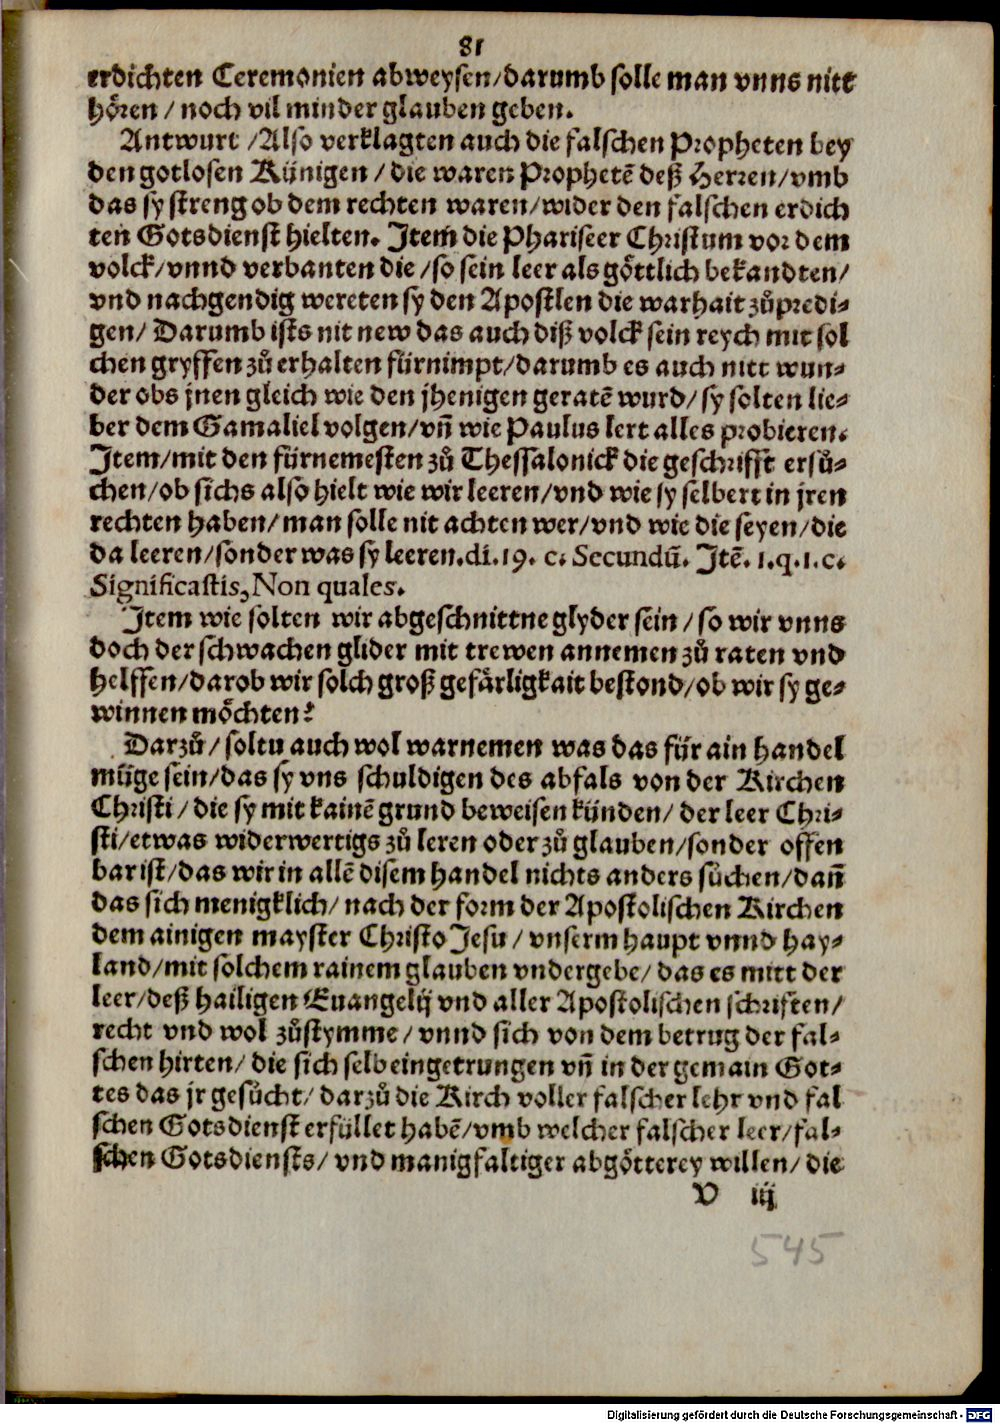 81
erdichten Ceremonien abweysen/darumb solle man vnns nitt
hören / noch vil minder glauben geben.
Antwurt /Also verklagten auch die falschen Propheten bey
den gotlosen Künigen / die waren Prophetē deß Herren/vmb
das sy streng ob dem rechten waren/wider den falschen erdich
ten Gotsdienst hielten. Item die Phariseer Christum vor dem
volck/vnnd verbanten die /so sein leer als göttlich bekandten/
vnd nachgendig wereten sy den Apostlen die warhait zůpredi⸗
gen/ Darumb ists nit new das auch diß volck sein reych mit sol
chen gryffen zů erhalten fürnimpt/darumb es auch nitt wun⸗
der obs jnen gleich wie den jhenigen geratē wurd/ sy solten lie⸗
ber dem Gamaliel volgen/vñ wie Paulus lert alles probieren.
Item/mit den fürnemesten zů Thessalonick die geschrifft ersů⸗
chen/ob sichs also hielt wie wir leeren/vnd wie sy selbert in jren
rechten haben/man solle nit achten wer/vnd wie die seyen/die
da leeren/sonder was sy leeren.di. 19. c. Secundū. Itē. 1.q.1.c.
Significastis, Non quales.
Item wie solten wir abgeschnittne glyder sein / so wir vnns
doch der schwachen glider mit trewen annemen zů raten vnd
helffen/darob wir solch groß gefärligkait bestond/ob wir sy ge⸗
winnen möchten?
Darzů / soltu auch wol warnemen was das für ain handel
müge sein/das sy vns schuldigen des abfals von der Kirchen
Christi / die sy mit kainē grund beweisen künden/ der leer Chri⸗
sti/etwas widerwertigs zů leren oder zů glauben/sonder offen
bar ist/das wir in allē disem handel nichts anders sůchen/dañ
das sich menigklich/ nach der form der Apostolischen Kirchen
dem ainigen mayster Christo Jesu / vnserm haupt vnnd hay⸗
land/mit solchem rainem glauben vndergebe/ das es mitt der
leer/deß hailigen Euangelij vnd aller Apostolischen schrifften/
recht vnd wol zůstymme / vnnd sich von dem betrug der fal⸗
schen hirten/ die sich selb eingetrungen vñ in der gemain Got⸗
tes das jr gesůcht/ darzů die Kirch voller falscher lehr vnd fal
schen Gotsdienst erfüllet habē/vmb welcher falscher leer/fal⸗
schen Gotsdiensts/ vnd manigfaltiger abgötterey willen/ die
V iij
545
Digitalisierung gefördert durch die Deutsche Forschungsgemeinschaft - DFG